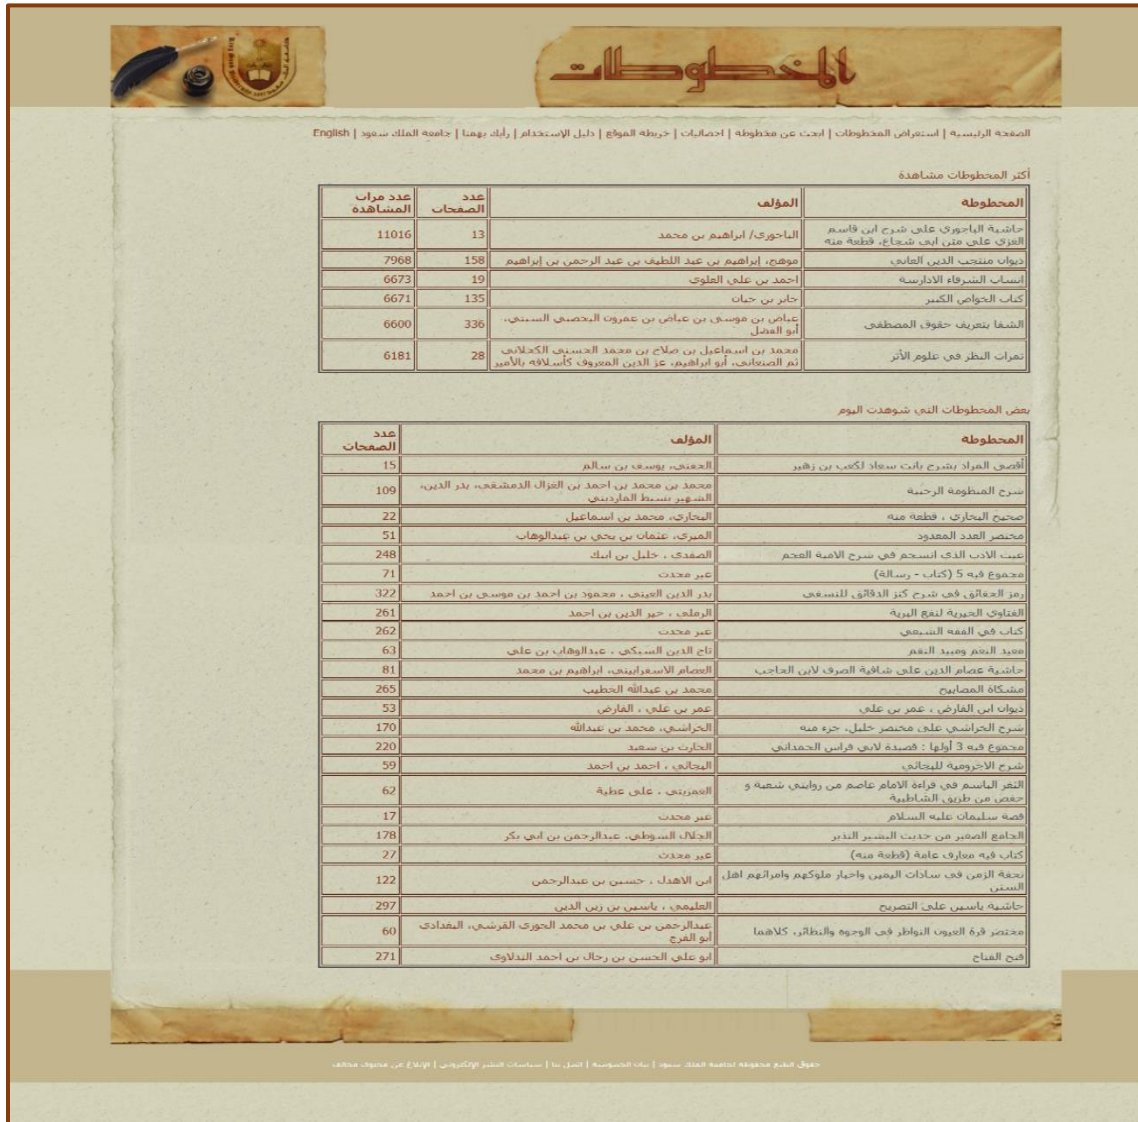 المخطوطات
الصفحة الرئيسية | استعراض المخطوطات | ابحث عن مخطوطة | احصائيات | خريطة الموقع | دليل الإستخدام | رأيك يهمنا | جامعة الملك سعود | English
أكثر المخطوطات مشاهدة
المخطوطة المؤلف عدد الصفحات عدد مرات المشاهدة
حاشية الباجوري على شرح ابن قاسم
الغزي على متن ابي شجاع، قطعة منه الباجوري/ ابراهيم بن محمد 13 11016
ديوان منتجب الدين العاني موهج، إبراهيم بن عبد اللطيف بن عبد الرحمن بن إبراهيم 158 7968
انساب الشرفاء الادارسة احمد بن علي العلوي 19 6673
كتاب الخواص الكبير جابر بن حيان 135 6671
الشفا بتعريف حقوق المصطفى عياض بن موسى بن عياض بن عمرون اليحصبي السبتي،
أبو الفضل 336 6600
ثمرات النظر في علوم الأثر محمد بن اسماعيل بن صلاح بن محمد الحسني الكحلاني
ثم الصنعاني، أبو ابراهيم، عز الدين المعروف كأسلافه بالأمير 28 6181
بعض المخطوطات التي شوهدت اليوم
المخطوطة المؤلف عدد الصفحات
أقصى المراد بشرح بانت سعاد لكعب بن زهير الحفني، يوسف بن سالم 15
شرح المنظومة الرحبية محمد بن محمد بن احمد بن الغزال الدمشقي، بدر الدين،
الشهير بسبط المارديني 109
صحيح البخاري ، قطعة منه البخاري، محمد بن اسماعيل 22
مختصر العدد المعدود عثمان بن يحي بن عبدالوهاب 51
غيث الادب الذي انسجم في شرح الامية العجم الصفدي ، خليل بن ايبك 248
مجموع فيه 5 (كتاب - رسالة) غير محدث 71
رمز الحقائق في شرح كنز الدقائق للنسفي بدر الدين العيني ، محمود بن احمد بن موسى بن احمد 322
الفتاوي الخيرية لنفع البرية الرملي ، خير الدين بن احمد 261
كتاب في الفقه الشيعي غير محدث 262
معيد النعم ومبيد النقم تاج الدين السبكي ، عبدالوهاب بن علي 63
حاشية عصام الدين على شافية الصرف لابن الحاجب العصام الاسفراييني، ابراهيم بن محمد 81
مشكاة المصابيح محمد بن عبدالله الخطيب 265
ديوان ابن الفارض ، عمر بن علي عمر بن علي ، الفارض 53
شرح الخراشي على مختصر خليل، جزء منه الخراشي، محمد بن عبدالله 170
مجموع فيه 3 أولها : قصيدة لابي فراس الحمداني الحارث بن سعيد 220
شرح الاجرومية للبجائي البجائي ، احمد بن احمد 59
الثغر الباسم في قراءة الامام عاصم من روايتي شعبة و
حفص من طريق الشاطبية علي عطية 62
قصة سليمان عليه السلام غير محدث 17
الجامع الصغير من حديث البشير النذير الجلال السوطي، عبدالرحمن بن ابي بكر 178
كتاب فيه معارف عامة (قطعة منه) غير محدث 27
تحفة الزمن في سادات اليمن واخبار ملوكهم وامرائهم اهل
السنن ابن الاهدل ، حسين بن عبدالرحمن 122
حاشية ياسين على التصريح العليمي ، ياسين بن زين الدين 297
مختصر قرة العيون النواظر في الوجوه والنظائر، كلاهما عبدالرحمن بن علي بن محمد الجوزي القرشي، البغدادي
أبو الفرج 60
فتح الفتاح ابو علي الحسن بن رحال بن احمد التدلاوي 271
حقوق الطبع محفوظة لجامعة الملك سعود | بيان الخصوصية | اتصل بنا | سياسات النشر الإلكتروني | الإبلاغ عن محتوى مخالف